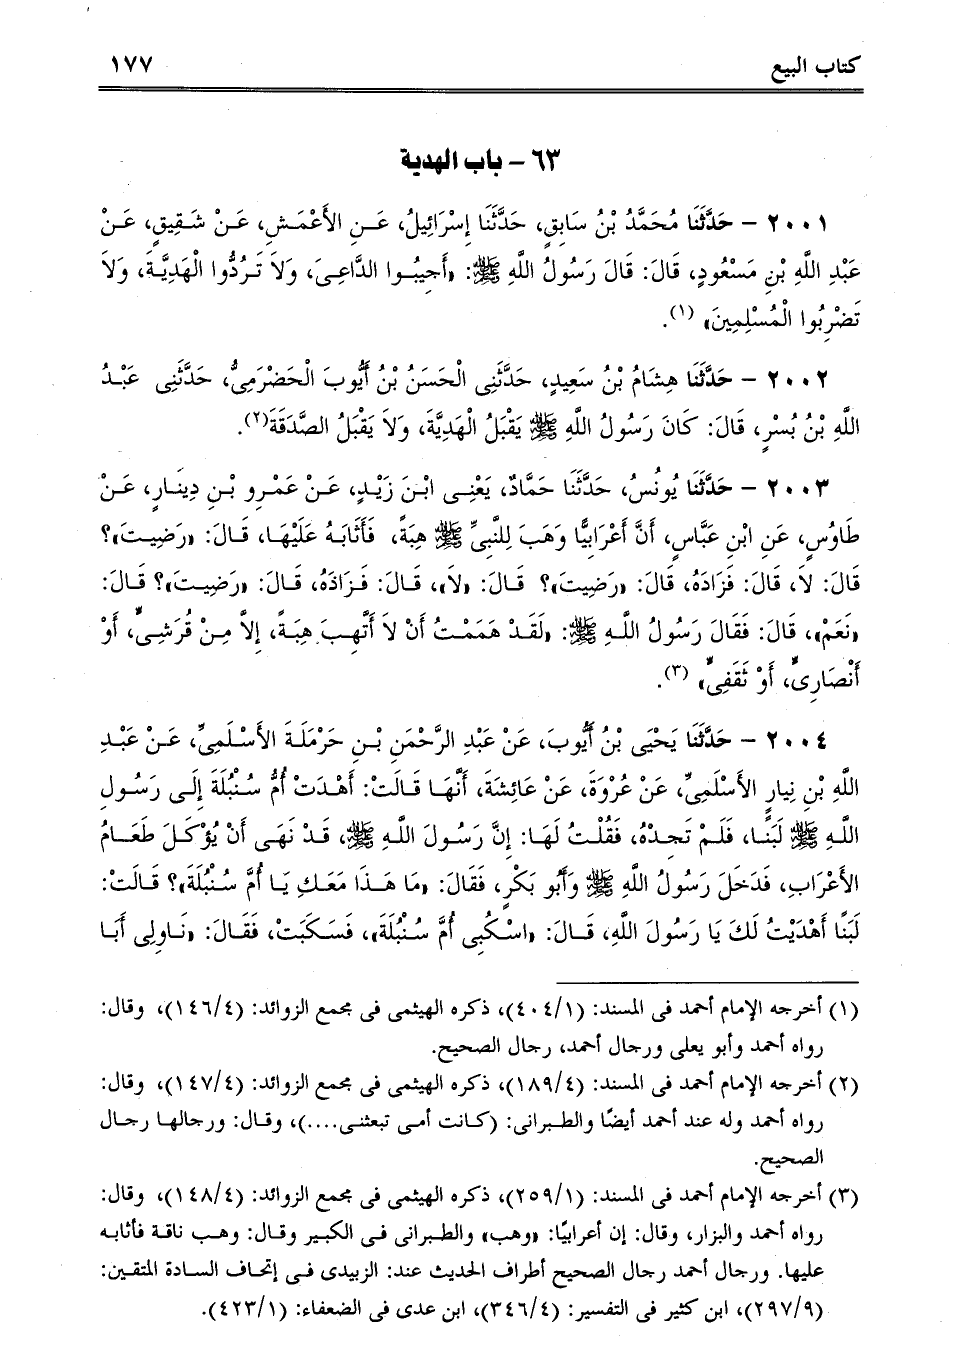 كتاب البيع ١٧٧
٦٣ – باب الهدية
٢٠٠١ – حَدَّثَنَا مُحَمَّدُ بْنُ سَابِقٍ، حَدَّثَنَا إِسْرَائِيلُ، عَنِ الأَعْمَشِ، عَنْ شَقِيقٍ، عَنْ
عَبْدِ اللَّهِ بْنِ مَسْعُودٍ، قَالَ: قَالَ رَسُولُ اللَّهِ ﷺ: «أَجِيبُوا الدَّاعِىَ، وَلاَ تَرُدُّوا الْهَدِيَّةَ، وَلاَ
تَضْرِبُوا الْمُسْلِمِينَ» (١).
٢٠٠٢ – حَدَّثَنَا هِشَامُ بْنُ سَعِيدٍ، حَدَّثَنِى الْحَسَنُ بْنُ أَيُّوبَ الْحَضْرَمِىُّ، حَدَّثَنِى عَبْدُ
اللَّهِ بْنُ بُسْرٍ، قَالَ: كَانَ رَسُولُ اللَّهِ ﷺ يَقْبَلُ الْهَدِيَّةَ، وَلاَ يَقْبَلُ الصَّدَقَةَ(٢).
٢٠٠٣ – حَدَّثَنَا يُونُسُ، حَدَّثَنَا حَمَّادٌ، يَعْنِى ابْنَ زَيْدٍ، عَنْ عَمْرِو بْنِ دِينَارٍ، عَنْ
طَاوُسٍ، عَنِ ابْنِ عَبَّاسٍ، أَنَّ أَعْرَابِيًّا وَهَبَ لِلنَّبِىِّ ﷺ هِبَةً، فَأَثَابَهُ عَلَيْهَا، قَالَ: «رَضِيتَ»؟
قَالَ: لاَ، قَالَ: فَزَادَهُ، قَالَ: «رَضِيتَ»؟ قَالَ: «لاَ»، قَالَ: فَزَادَهُ، قَالَ: «رَضِيتَ»؟ قَالَ:
«نَعَمْ»، قَالَ: فَقَالَ رَسُولُ اللَّهِ ﷺ: «لَقَدْ هَمَمْتُ أَنْ لاَ أَتَّهِبَ هِبَةً، إِلاَّ مِنْ قُرَشِىٍّ، أَوْ
أَنْصَارِىٍّ، أَوْ ثَقَفِىٍّ» (٣).
٢٠٠٤ – حَدَّثَنَا يَحْيَى بْنُ أَيُّوبَ، عَنْ عَبْدِ الرَّحْمَنِ بْنِ حَرْمَلَةَ الأَسْلَمِىِّ، عَنْ عَبْدِ
اللَّهِ بْنِ نِيَارٍ الأَسْلَمِىِّ، عَنْ عُرْوَةَ، عَنْ عَائِشَةَ، أَنَّهَا قَالَتْ: أَهْدَتْ أُمُّ سُنْبُلَةَ إِلَى رَسُولِ
اللَّهِ ﷺ لَبَنًا، فَلَمْ تَجِدْهُ، فَقُلْتُ لَهَا: إِنَّ رَسُولَ اللَّهِ ﷺ، قَدْ نَهَى أَنْ يُؤْكَلَ طَعَامُ
الأَعْرَابِ، فَدَخَلَ رَسُولُ اللَّهِ ﷺ وَأَبُو بَكْرٍ، فَقَالَ: «مَا هَذَا مَعَكِ يَا أُمَّ سُنْبُلَةَ»؟ قَالَتْ:
لَبَنًا أَهْدَيْتُ لَكَ يَا رَسُولَ اللَّهِ، قَالَ: «اسْكُبِى أُمَّ سُنْبُلَةَ»، فَسَكَبَتْ، فَقَالَ: «نَاوِلِى أَبَا
(١) أخرجه الإمام أحمد فى المسند: (٤٠٤/١)، ذكره الهيثمى فى مجمع الزوائد: (١٤٦/٤)، وقال:
رواه أحمد وأبو يعلى ورجال أحمد، رجال الصحيح.
(٢) أخرجه الإمام أحمد فى المسند: (١٨٩/٤)، ذكره الهيثمى فى مجمع الزوائد: (١٤٧/٤)، وقال:
رواه أحمد وله عند أحمد أيضًا والطبرانى: (كانت أمى تبعثنى....)، وقال: ورجالها رجال
الصحيح.
(٣) أخرجه الإمام أحمد فى المسند: (٢٥٩/١)، ذكره الهيثمى فى مجمع الزوائد: (١٤٨/٤)، وقال:
رواه أحمد والبزار، وقال: إن أعرابيًا: «وهب» والطبرانى فى الكبير وقال: وهب ناقة فأثابه
عليها. ورجال أحمد رجال الصحيح أطراف الحديث عند: الزبيدى فى إتحاف السادة المتقين:
(٢٩٧/٩)، ابن كثير فى التفسير: (٣٤٦/٤)، ابن عدى فى الضعفاء: (٤٢٣/١).